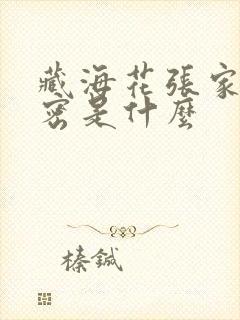 藏海花張家
密是什麼
榛鋮